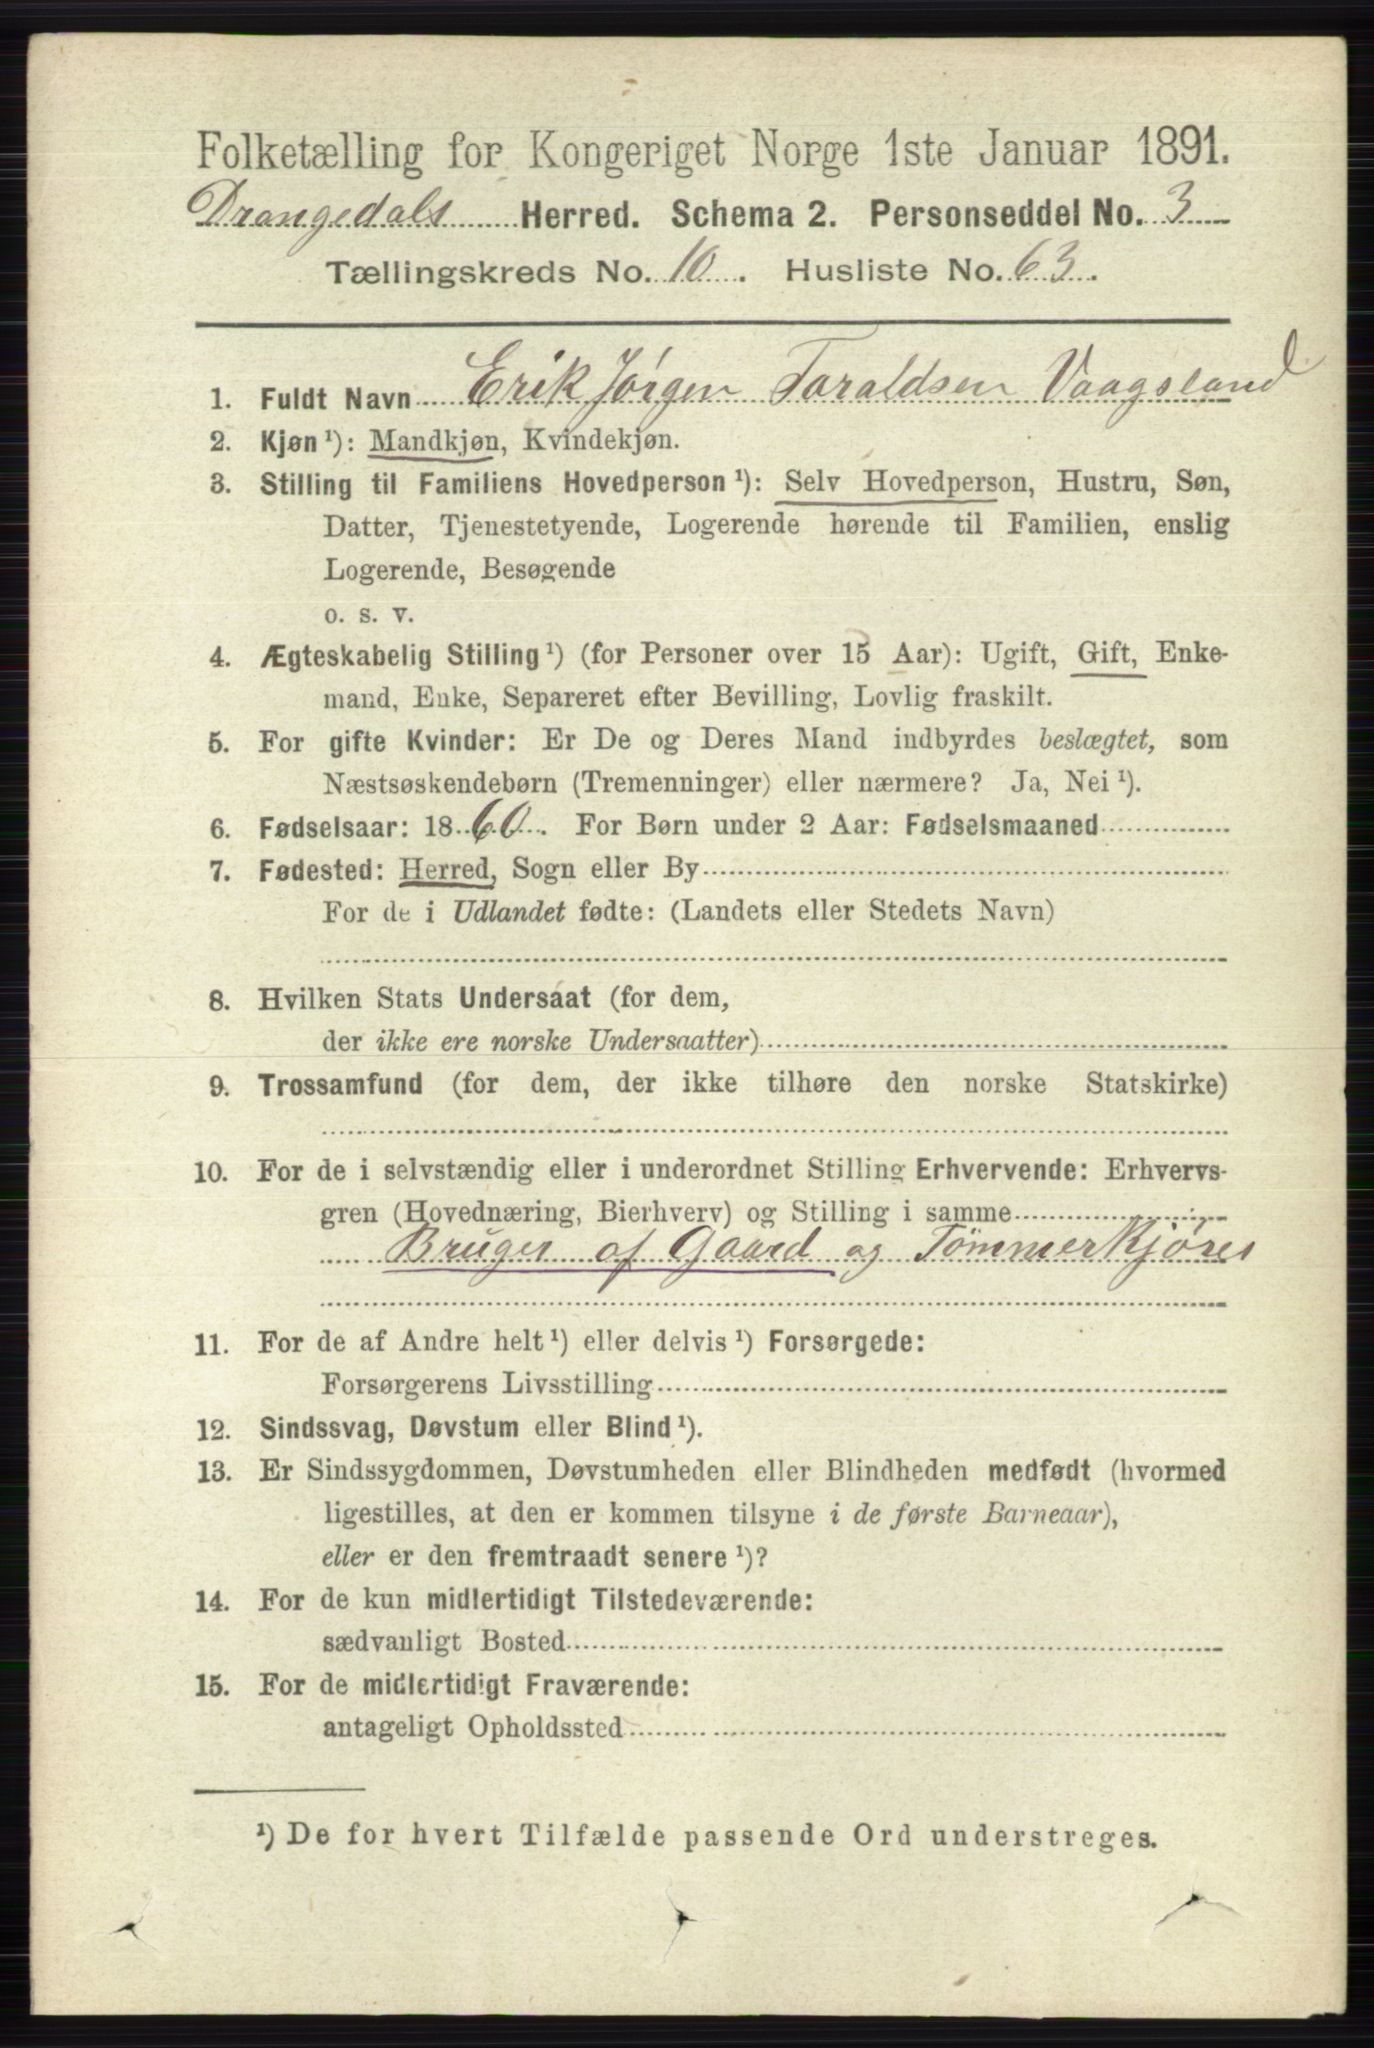 Folketælling for Kongeriget Norge 1ste Januar 1891.
Drangedals Herred. Schema 2. Personseddel No. 3
Tællingskreds No. 10. Husliste No. 63.
1. Fuldt Navn Erik Jørgen Taraldsen Vaagsland
2. Kjøn ¹): Mandkjøn, Kvindekjøn.
3. Stilling til Familiens Hovedperson ¹): Selv Hovedperson, Hustru, Søn,
Datter, Tjenestetyende, Logerende hørende til Familien, enslig
Logerende, Besøgende
o. s. v.
4. Ægteskabelig Stilling ¹) (for Personer over 15 Aar): Ugift, Gift, Enke-
mand, Enke, Separeret efter Bevilling, Lovlig fraskilt.
5. For gifte Kvinder: Er De og Deres Mand indbyrdes beslægtet, som
Næstsøskendebørn (Tremenninger) eller nærmere? Ja, Nei ¹).
6. Fødselsaar: 1860. For Børn under 2 Aar: Fødselsmaaned
7. Fødested: Herred, Sogn eller By
For de i Udlandet fødte: (Landets eller Stedets Navn)
8. Hvilken Stats Undersaat (for dem,
der ikke ere norske Undersaatter)
9. Trossamfund (for dem, der ikke tilhøre den norske Statskirke)
10. For de i selvstændig eller i underordnet Stilling Erhvervende: Erhvervs-
gren (Hovednæring, Bierhverv) og Stilling i samme
Bruger af Gaard og Tömmerkjører
11. For de af Andre helt ¹) eller delvis ¹) Forsørgede:
Forsørgerens Livsstilling
12. Sindssvag, Døvstum eller Blind ¹).
13. Er Sindssygdommen, Døvstumheden eller Blindheden medfødt (hvormed
ligestilles, at den er kommen tilsyne i de første Barneaar),
eller er den fremtraadt senere ¹)?
14. For de kun midlertidigt Tilstedeværende:
sædvanligt Bosted
15. For de midlertidigt Fraværende:
antageligt Opholdssted
¹) De for hvert Tilfælde passende Ord understreges.